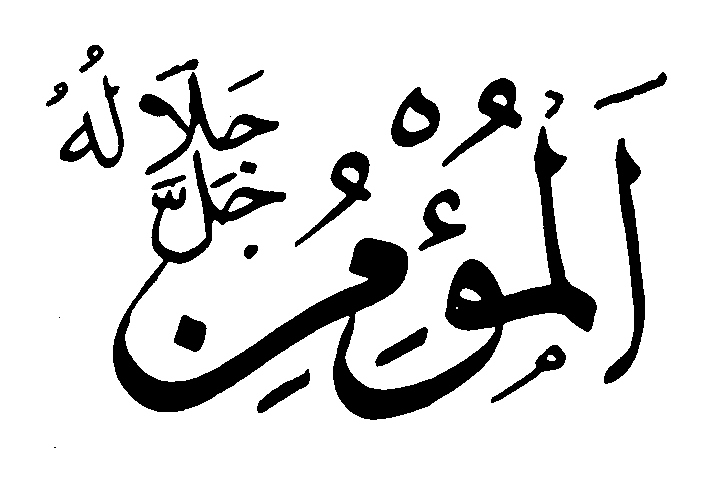 اَلْمُؤْمِنُ
جَلَّ جَلَالُهُ